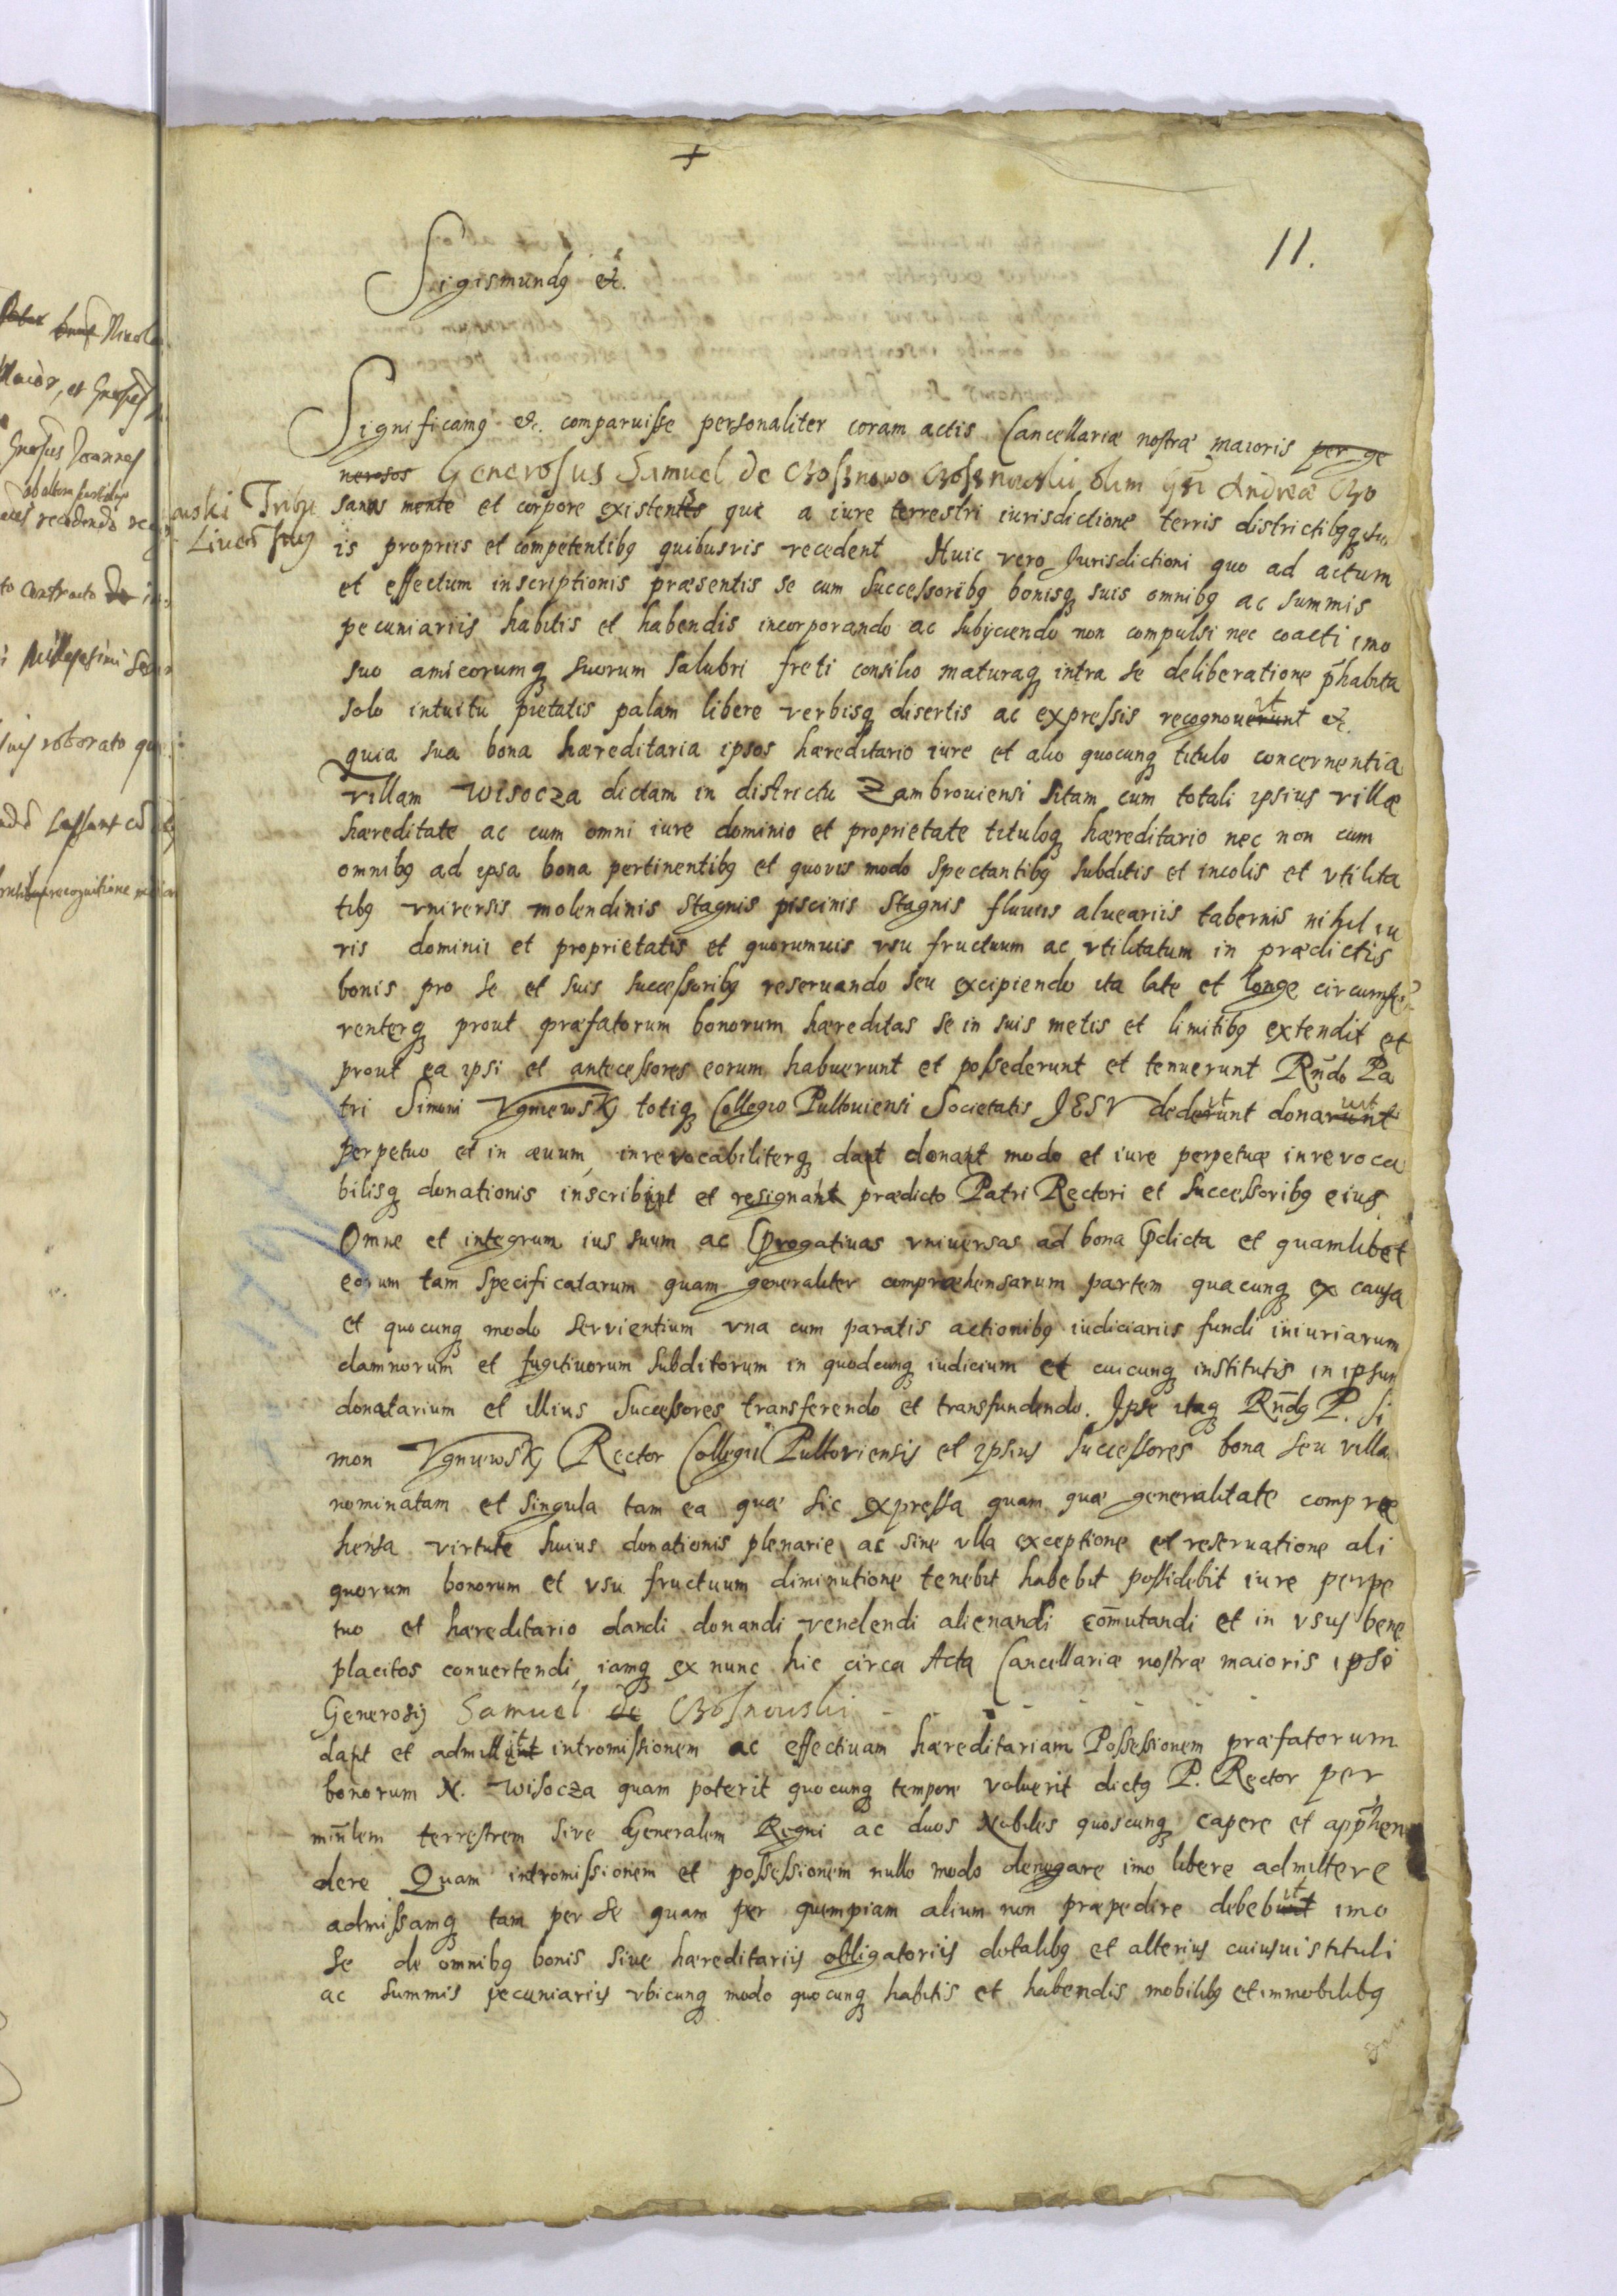 +
11.
Sigismundq etc.
Significamq etc. comparuisse personaliter coram actis Cancellariæ nostræ maioris per ge
nerosos Generosus Samuel de olim Gn̄i Andreæ
sanus mente et corpore existentes qui a iure terrestri iurisdictione terris districtibqq su
is propriis et competentibq quibusvis recedent Huic vero Jurisdictioni quo ad actum
et effectum inscriptionis præsentis se cum successoribq bonisq suis omnibq ac summis
pecuniariis habitis et habendis incorporando ac subijciendo non compulsi nec coacti imo
suo amicorumq suorum salubri freti consilio maturaq intra se deliberatione p̄habita
solo intuitu pietatis palam libere verbisq disertis ac expressis recognoverunt it etc.
quia sua bona hæreditaria ipsos hæreditario iure et alio quocunq titulo concernentia
villam Wisocza dictam in districtu Zambroviensi sitam cum totali ipsius villæ
hæreditate ac cum omni iure dominio et proprietate tituloq hæreditario nec non cum
omnibq ad ipsa bona pertinentibq et quovis modo spectantibq subditis et incolis et vtilita
tibq vniversis molendinis stagnis piscinis stagnis fluviis alveariis tabernis nihil iu
ris dominii et proprietatis et quorumuis vsu fructuum ac vtilitatum in prædictis
bonis pro se et suis successoribq reseruando seu excipiendo ita late et longe circumfe
renterq prout præfatorum bonorum hæreditas se in suis metis et limitibq extendit et
prout ea ipsi et antecessores eorum habuerunt et possederunt et tenuerunt Rn̄do Pa
tri Simoni Vgniewskj totiq Collegio Pultoviensi Societatis JESV dederunt it donarunt uit
perpetuo et in ævum, inrevocabiliterq dant donant modo et iure perpetuæ inrevoca
bilisq donationis inscribunt et resignant prædicto Patri Rectori et successoribq eius
Omne et integrum ius suum ac prerogativas vniversas ad bona p̄dicta et quamlibet
eorum tam specificatarum quam generaliter compræhensarum partem quacunq ex causa
et quocunq modo servientium vna cum paratis actionibq iudiciariis fundi iniuriarum
damnorum et fugitivorum subditorum in quodcunq iudicium et cuicunq institutis in ipsum
donatarium et illius Successores transferendo et transfundendo. Ipse itaq Rn̄dq P. Si
mon Vgniewskj Rector Collegii Pultoviensis et ipsius successores bona seu villa
nominatam et singula tam ea quæ sic expressa quam quæ generalitate compræ
hensa virtute huius donationis plenarie ac sine vlla exceptione et reservatione ali
quorum bonorum et vsu fructuum diminutione tenebit habebit possidebit iure perpe
tuo et hæreditario dandi donandi vendendi alienandi com̄utandi et in vsus bene
placitos convertendi, iamq ex nunc hic circa Acta Cancellariæ nostræ maioris ipse
Generosq Samuel de
dant et admittunt it intromissionem ac effectiuam hæreditariam Possessionem præfatorum
bonorum N. Wisocza quam poterit quocunq tempore voluerit dictq P. Rector per
min̄lem terrestrem sive Generalem Regni ac duos Nobiles quoscunq capere et app̄hen
dere Quam intromissionem et possessionem nullo modo denegare imo libere admittere
admissamq tam per se quam per quempiam alium non præpedire debebunt it imo
se de omnibq bonis sive hæreditariis obligatoriis dotalibq et alterius cuiusuis tituli
ac summis pecuniariis vbicunq modo quocunq habitis et habendis mobilibq et immobilibq